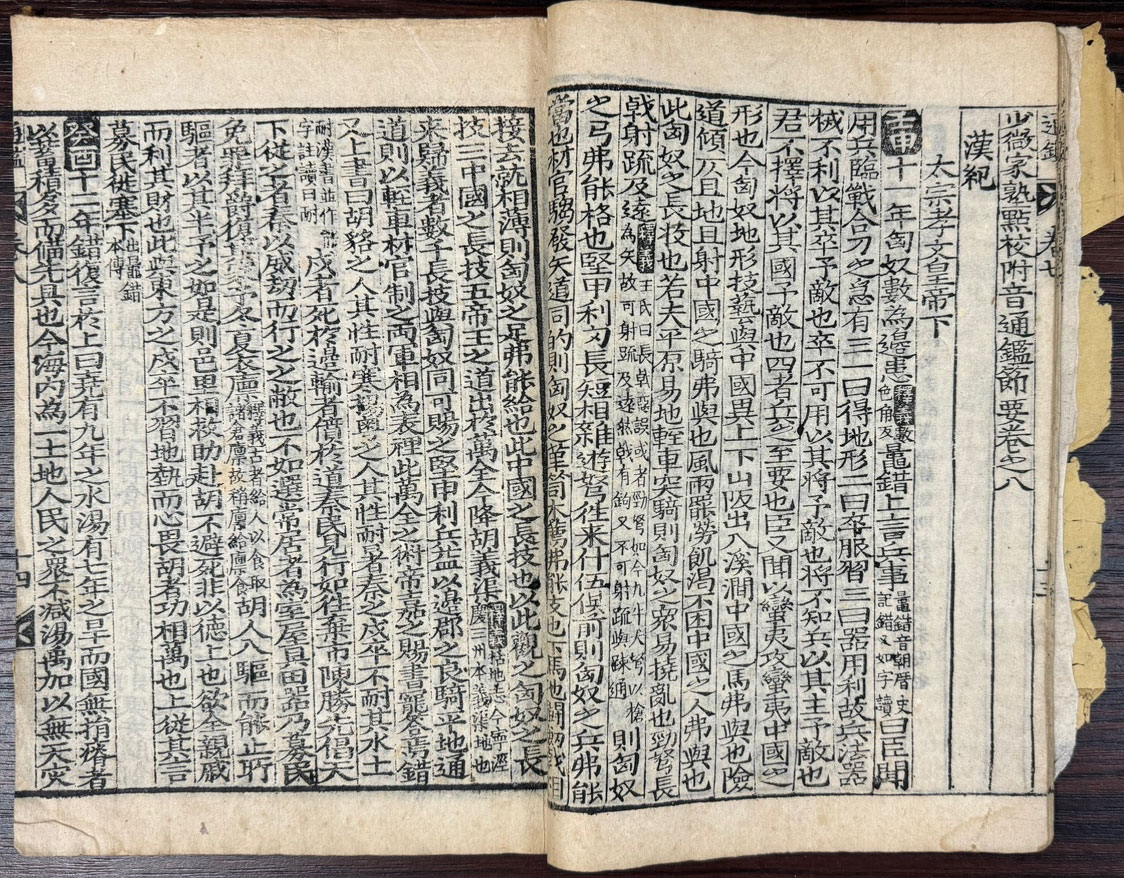 通鑑 卷七
少微家塾點校附音通鑑節要卷之八
漢紀
太宗孝文皇帝下
壬申十一年匈奴數為邊患釋義數色角反鼂錯上言兵事鼂錯音朝厝史記錯又如字讀曰臣聞
用兵臨戰合刃之急有三一曰得地形二曰卒服習三曰器用利故兵法器
械不利以其卒予敵也卒不可用以其將予敵也將不知兵以其主予敵也
君不擇將以其國予敵也四者兵之至要也臣又聞以蠻夷攻蠻夷中國之
形也今匈奴地形技藝與中國異上下山阪出入溪澗中國之馬弗與也險
道傾仄且馳且射中國之騎弗與也風雨罷勞飢渴不困中國之人弗與也
此匈奴之長技也若夫平原易地輕車突騎則匈奴之衆易撓亂也勁弩長
戟射疏及遠釋義王氏曰長戟恐誤或者勁弩如今九牛大弩以槍為矢故可射疏及遠然戟有鉤又不可射疏與踈通則匈奴
之弓弗能格也堅甲利刃長短相雜遊弩往来什伍俱前則匈奴之兵弗能
當也材官騶發矢道同的則匈奴之革笥木薦弗能支也下馬地鬪劒戟相
接去就相薄則匈奴之足弗能給也此中國之長技也以此觀之匈奴之長
技三中國之長技五帝王之道出於萬全今降胡義渠釋義括地志今寧涇慶三州本義渠地也
来歸義者數千長技與匈奴同可賜之堅甲利兵益以邊郡之良騎平地通
道則以輕車材官制之兩軍相為表裡此萬全之術帝嘉之賜書寵荅焉錯
又上書曰胡貉之人其性耐寒揚粵之人其性耐暑秦之戍卒不耐其水土
耐漢書並作能字註讀曰耐戍者死於邊輸者僨於道秦民見行如往棄市陳勝先倡天
下從之者秦以威劫而行之之敝也不如選常居者為室屋具田器乃募民
免罪拜爵復其家予冬夏衣廩釋義古者給人以食取諸倉廩故稱廩給廩食胡人入驅而能止所
驅者以其半予之如是則邑里相救助赴胡不避死非以德上也欲全親戚
而利其財也此與東方之戍卒不習地勢而心畏胡者功相萬也上從其言
募民徙塞下出鼂錯本傳
癸酉十二年錯復言於上曰堯有九年之水湯有七年之旱而國無捐瘠者
以蓄積多而備先具也今海内為一土地人民之眾不减湯禹加以無天灾
通鑑 卷八 十四